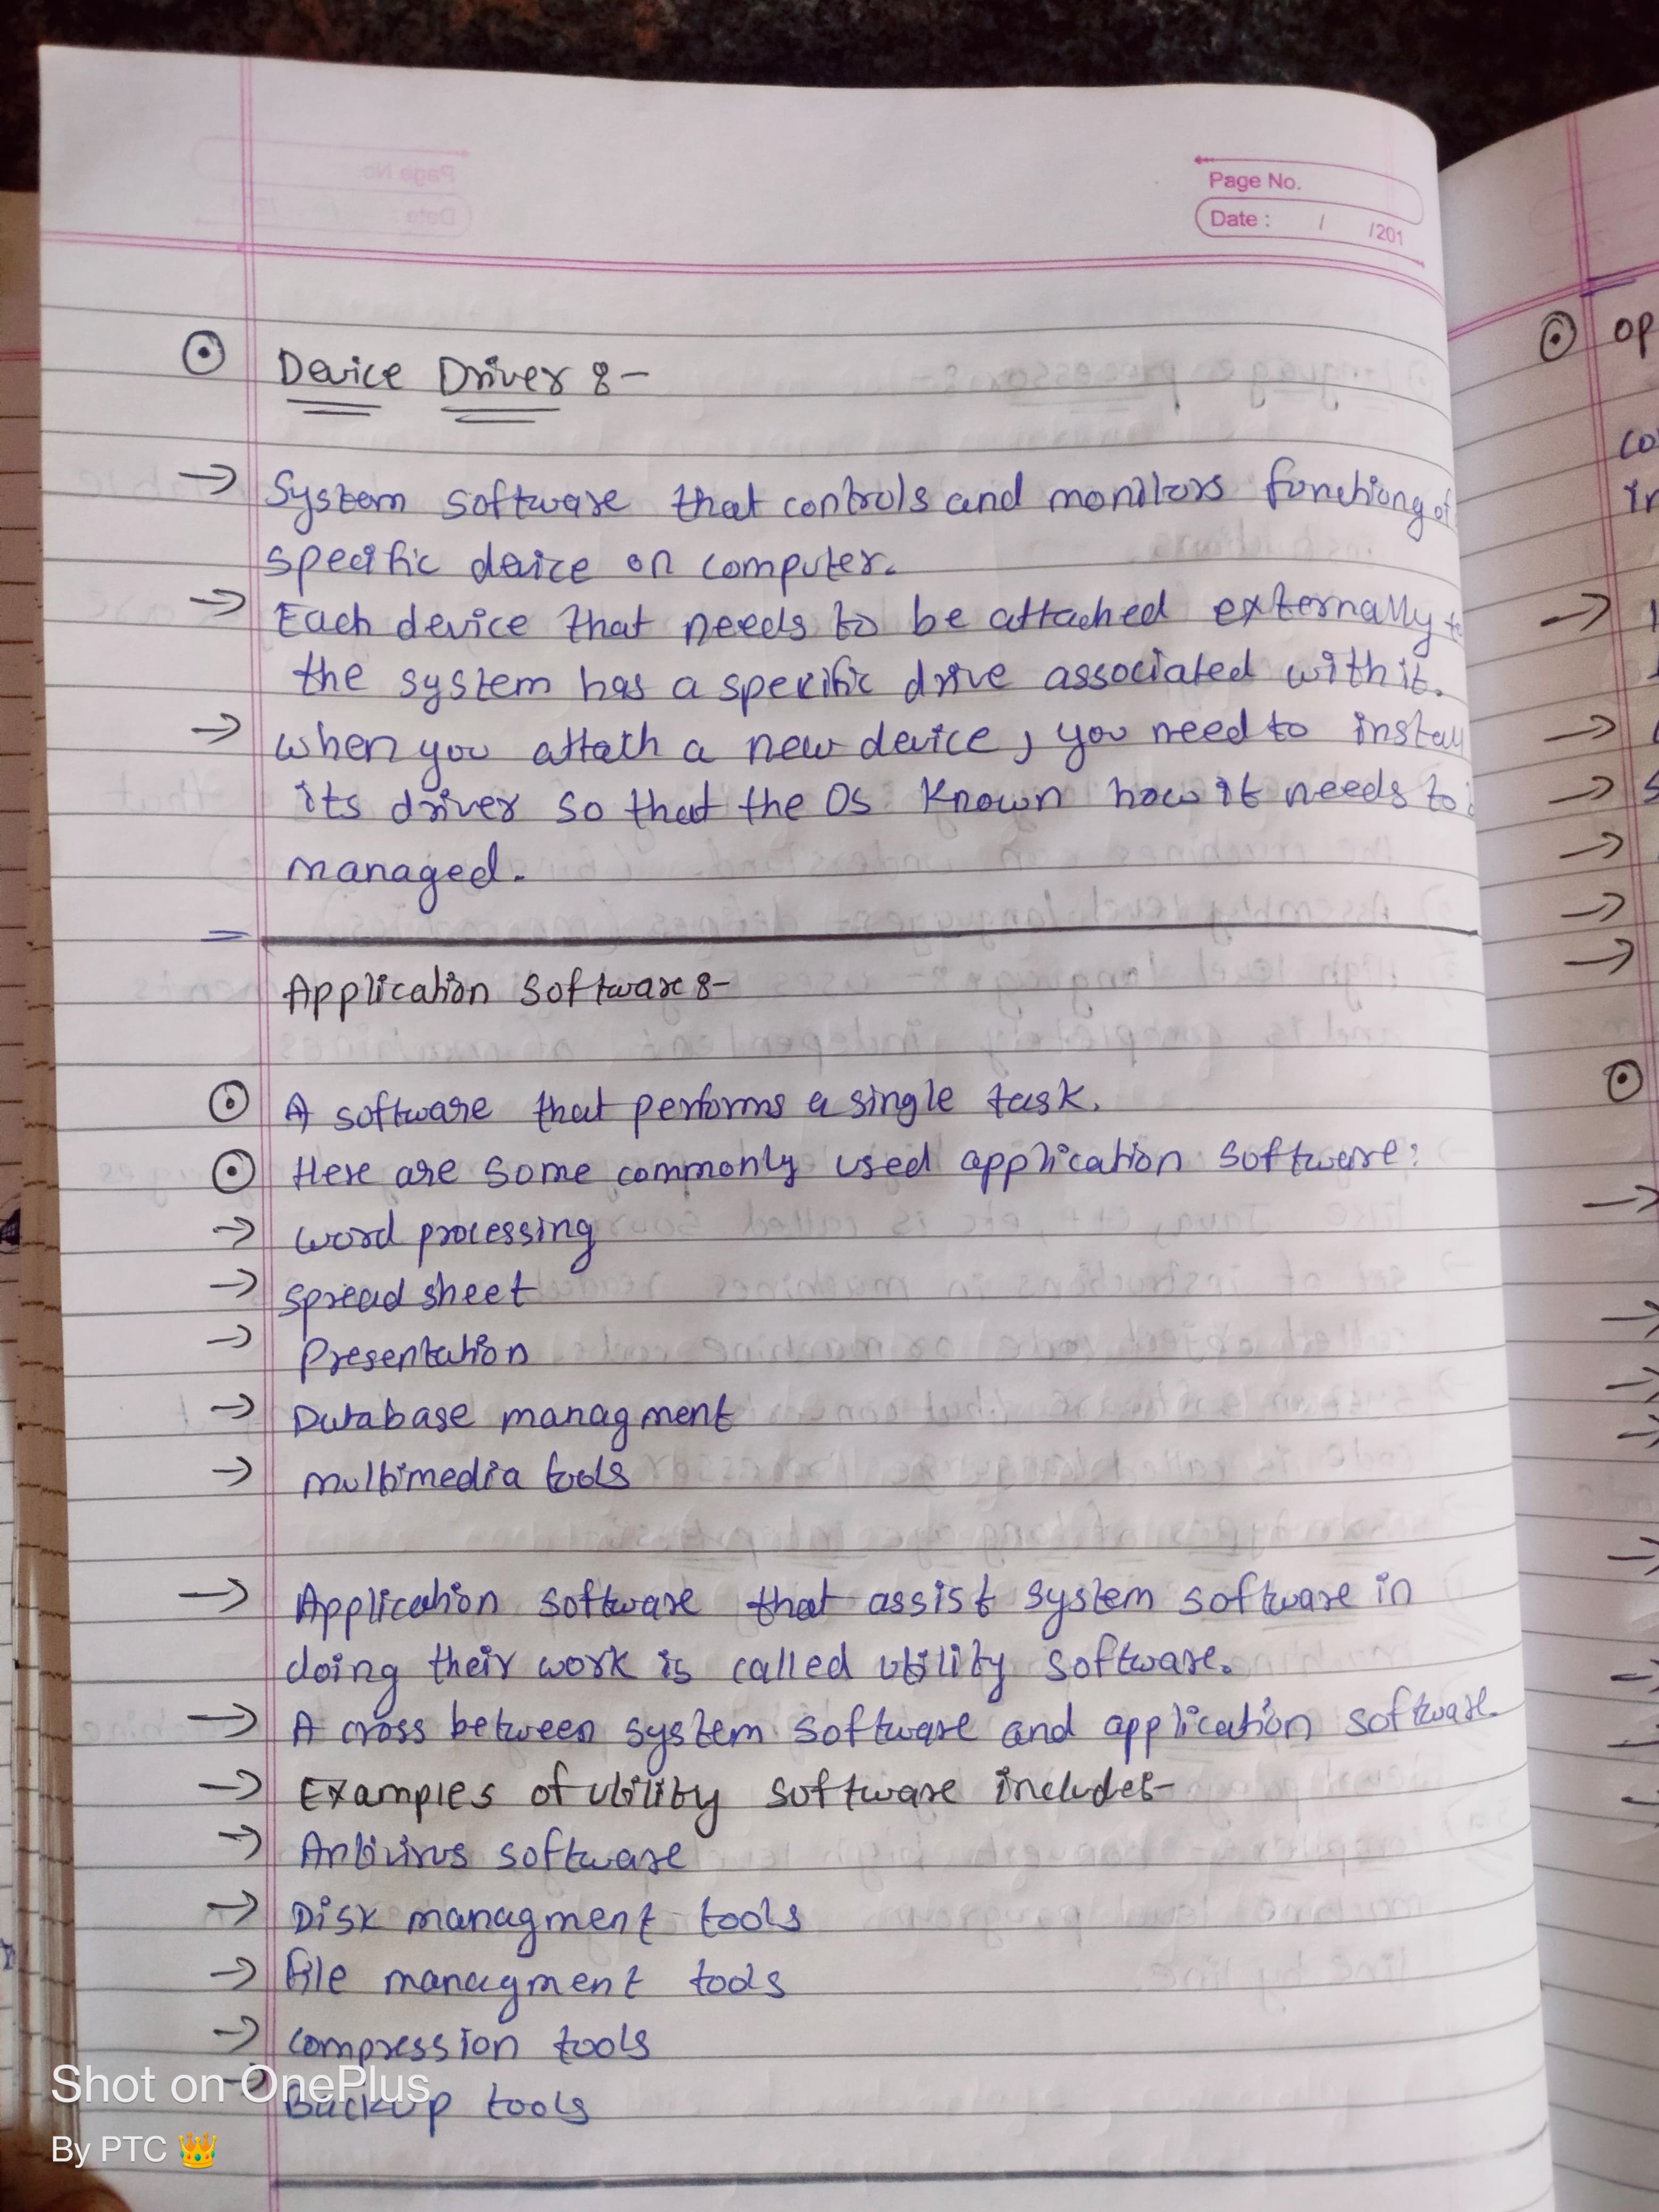 Page No.
Date : / /201
Device Driver :-
→ System software that controls and monitors functiong of
specific device on computer.
→ Each device that needs to be attached externally to
the system has a specific drive associated with it.
→ when you attach a new device, you need to install
its driver so that the OS Known how it needs to
managed.
Application Software :-
⊙ A software that performs a single task.
⊙ Here are some commonly used application software:
→ word processing
→ spread sheet
→ Presentation
→ Database managment
→ multimedia tools
→ Application software that assist system software in
doing their work is called utility software.
→ A cross between system software and application software.
→ Examples of utility software includes-
→ Antivirus software
→ Disk managment tools
→ file managment tools
→ compression tools
→ Backup tools
Shot on OnePlus
By PTC 👑
⊙ op
co
in